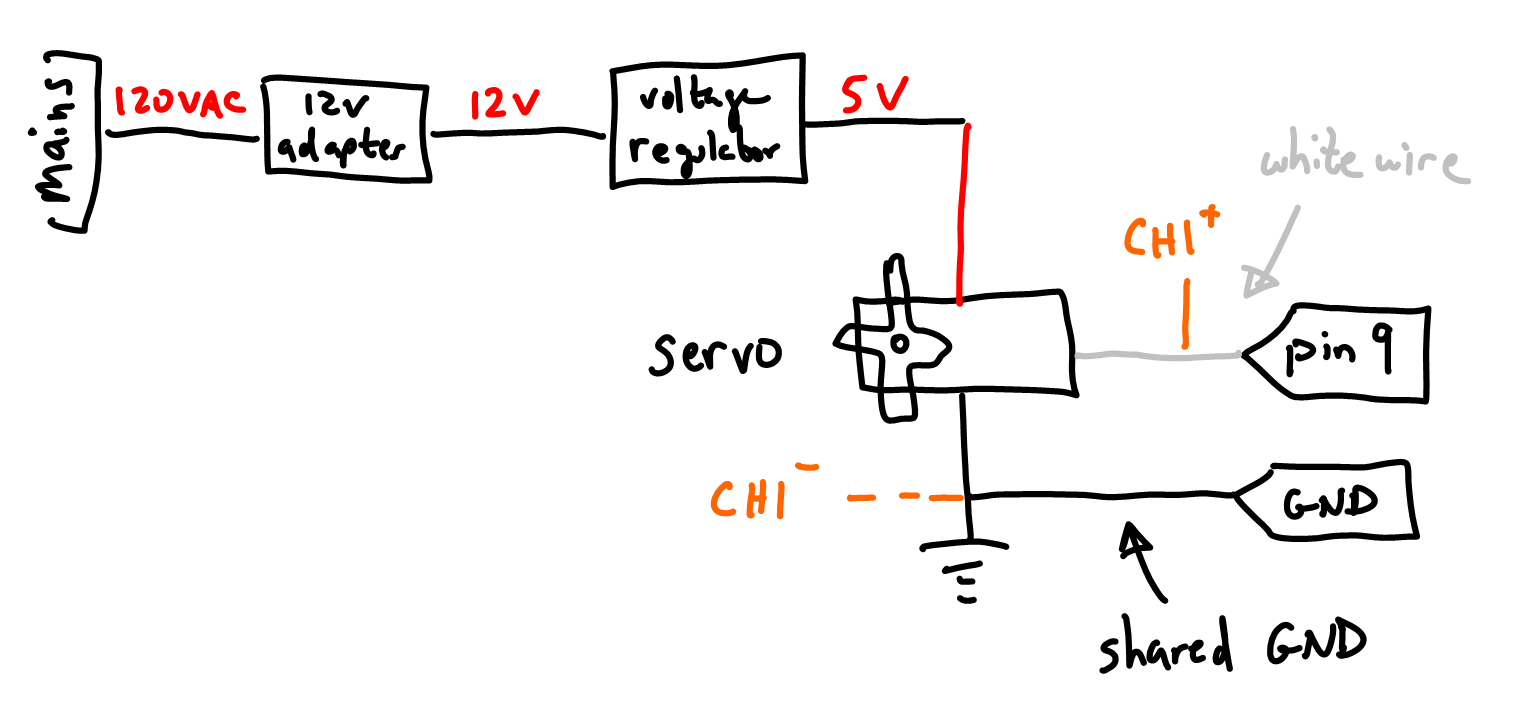 Mains
120VAC
12v
adapter
12V
voltage
regulator
5V
white wire
CH1+
servo
pin 9
CH1-
GND
shared GND